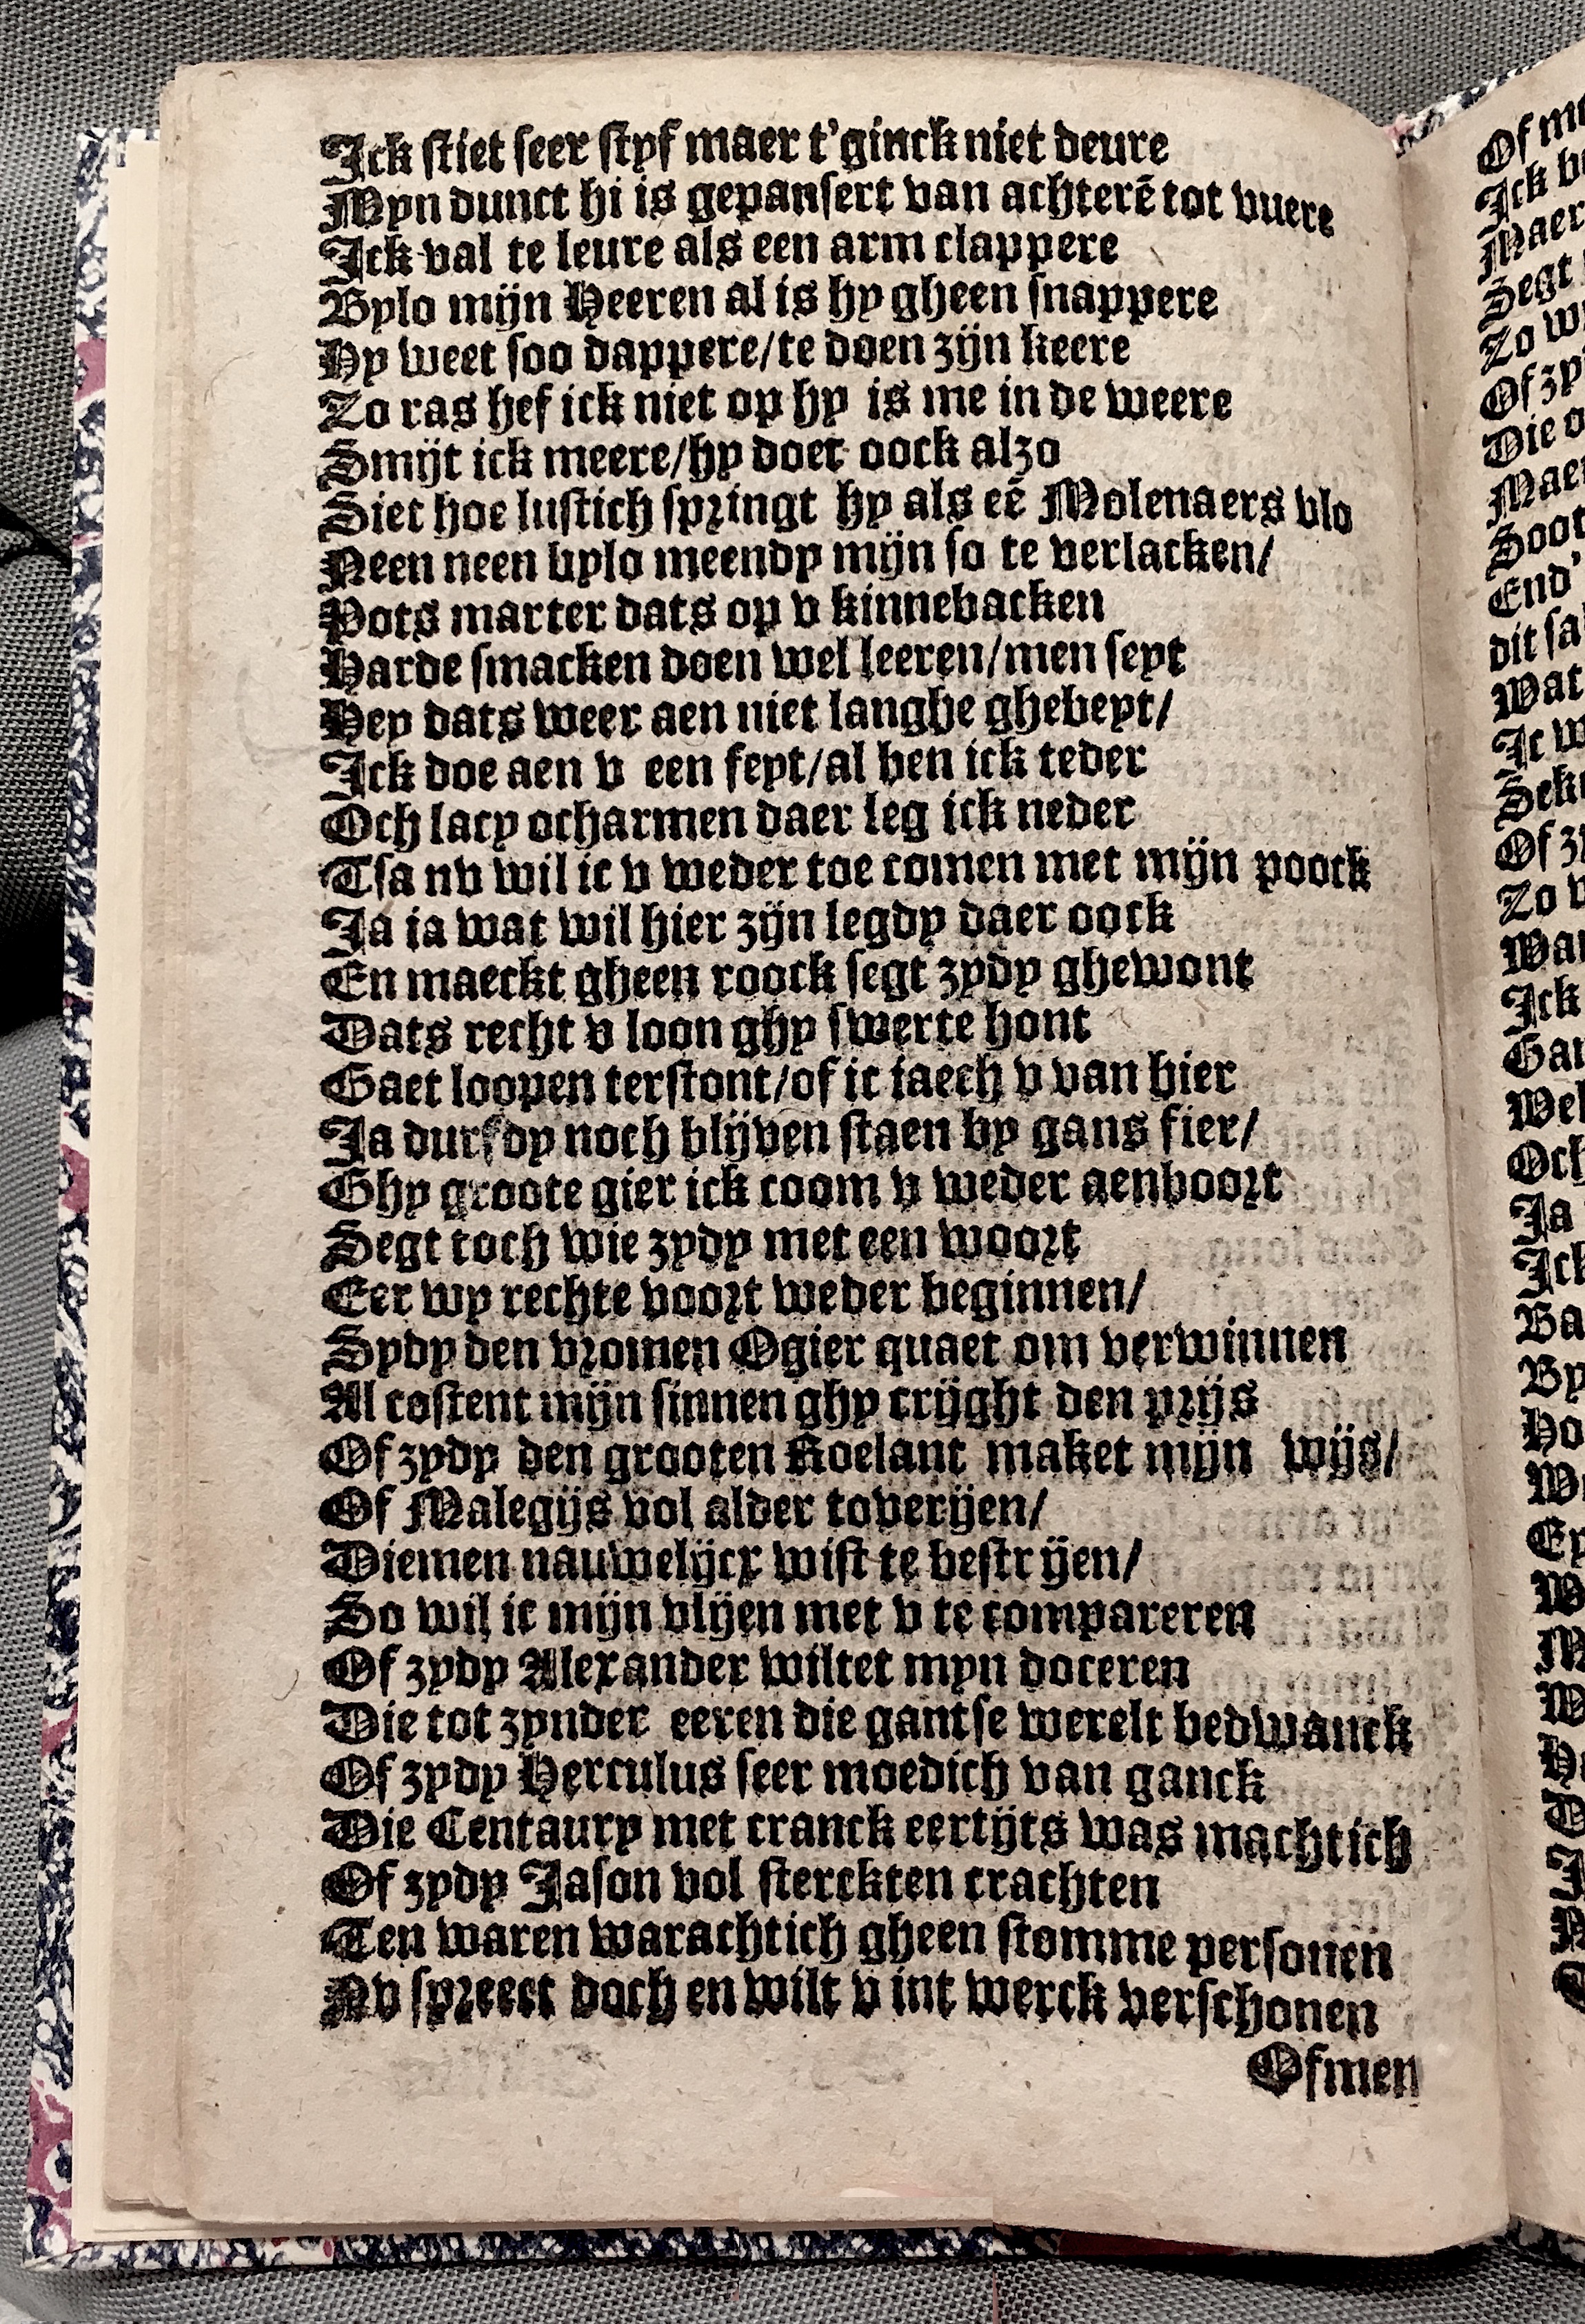 Ick stiet seer styf maer t'ginck niet deure
Myn dunct hi is gepansert van achterē tot vuere
Ick val te leure als een arm clappere
Bylo mijn Heeren al is hy gheen snappere
Hy weet soo dappere/te doen zijn keere
Zo ras hef ick niet op hy is me in de weere
Smijt ick meere/hy doet oock alzo
Siet hoe lustich springt hy als eē Molenaers vlo
Neen neen bylo meendy mijn so te verlacken/
Pots marter dats op v kinnebacken
Harde smacken doen wel leeren/men seyt
Hey dats weer aen niet langhe ghebeyt/
Ick doe aen v een feyt/al ben ick teder
Och lacy ocharmen daer leg ick neder
Tsa nv wil ic v weder toe comen met mijn poock
Ja ia wat wil hier zijn legdy daer oock
En maeckt gheen roock segt zydy ghewont
Dats recht v loon ghy swerte hont
Gaet loopen terstont/of ic iaech v van hier
Ja dursdy noch blijven staen by gans fier/
Ghy groote gier ick coom v weder aenboort
Segt toch wie zydy met een woort
Eer wy rechte voort weder beginnen/
Sydy den vromen Ogier quaet om verwinnen
Al costent mijn sinnen ghy crijght den prijs
Of zydy den grooten Roelant maket mijn wijs/
Of Malegijs vol alder toverijen/
Diemen nauwelijcx wist te bestrijen/
So wil ic mijn vlijen met v te compareren
Of zydy Alexander wiltet myn doceren
Die tot zynder eeren die gantse werelt bedwanck
Of zydy Herculus seer moedich van ganck
Die Centaury met cranck eertijts was machtich
Of zydy Jason vol sterckten crachten
Ten waren warachtich gheen stomme personen
Nv spreect doch en wilt v int werck verschonen
Ofmen
Of
Ick
Maer
Segt
Zo
Of
Die
Maer
Soot
End'
dit
Wat
Ic
Of
Zo
Ick
Och
Ja
Ick